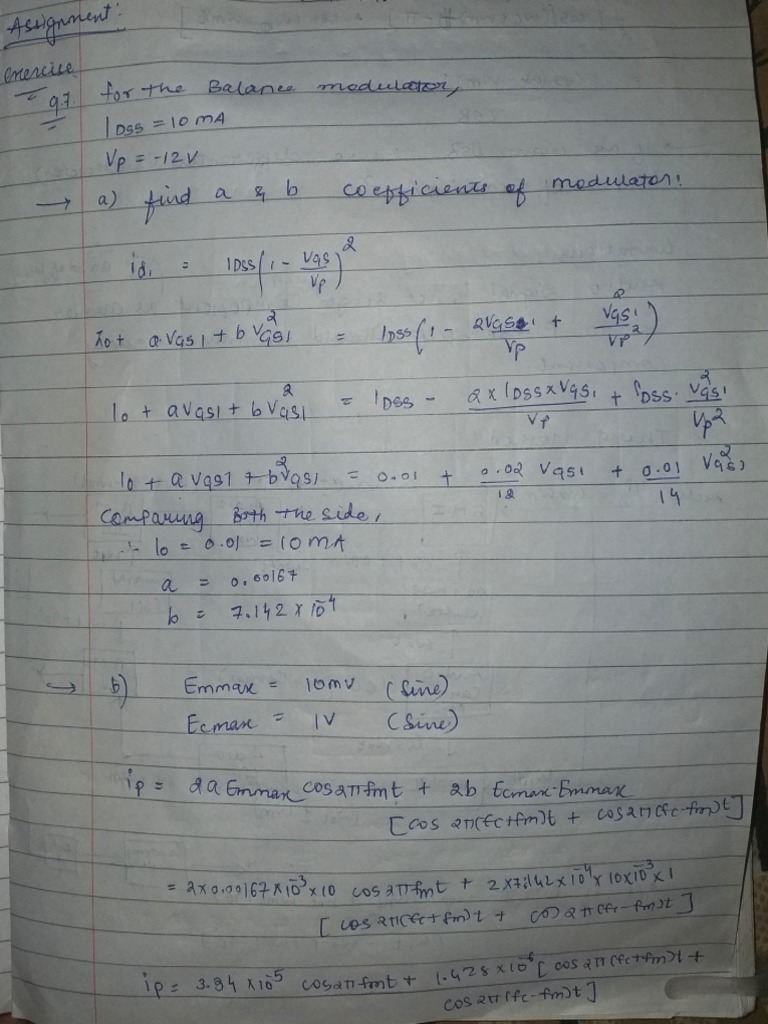 Assignment:
exercise
9.7 for the Balance modulator,
IDSS = 10 mA
Vp = -12 V
→ a) find a & b coefficients of modulator:
id1 = IDSS(1 - VGS/Vp)²
I0 + aVGS1 + bVGS1² = IDSS(1 - 2VGS1/Vp + VGS1²/Vp²)
I0 + aVGS1 + bVGS1² = IDSS - 2 x IDSS x VGS1/Vp + IDSS · VGS1²/Vp²
I0 + aVGS1 + b²VGS1 = 0.01 + 0.02/12 VGS1 + 0.01/14 VGS1²
Comparing Both the side,
∴ I0 = 0.01 = 10 mA
a = 0.00167
b = 7.142 x 10⁻⁴
→ b) Emmax = 10mV (Sine)
Ecmax = 1V (Sine)
ip = 2a Emmax cos2πfmt + 2b Ecmax·Emmax
[cos 2π(fc+fm)t + cos2π(fc-fm)t]
= 2x0.00167x10⁻³x10 cos2πfmt + 2x7.142x10⁻⁴x10x10⁻³x1
[cos2π(fc+fm)t + cos2π(fc-fm)t]
ip = 3.34 x10⁻⁵ cos2πfmt + 1.428 x10⁻⁶ [cos2π(fc+fm)t +
cos2π(fc-fm)t]